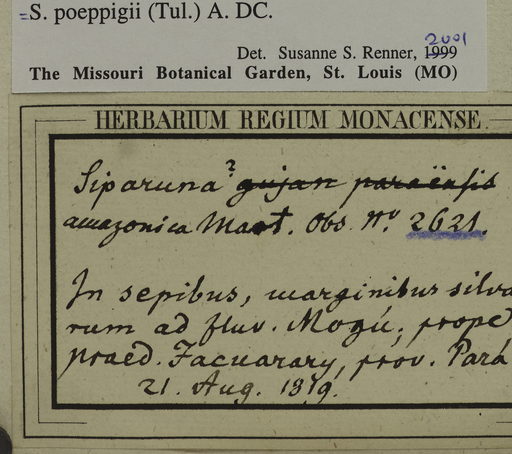 =S. poeppigii (Tul.) A. DC.
2001
Det. Susanne S. Renner, 1999
The Missouri Botanical Garden, St. Louis (MO)
HERBARIUM REGIUM MONACENSE
Siparuna? gujan paraënsis
amazonica Mart. Obs. N.º 2621.
In sepibus, marginibus silva
rum ad fluv. Mogú, prope
praed. Jacuarary, prov. Pará
21. Aug. 1819.